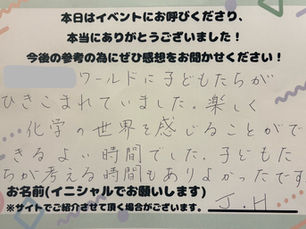 本日はイベントにお呼びくださり、
本当にありがとうございました！
今後の参考の為にぜひ感想をお聞かせください！
ワールドに子どもたちが
ひきこまれていました。楽しく
化学の世界を感じることがで
きるよい時間でした。子どもた
ちが考える時間もありよかったです
お名前(イニシャルでお願いします)
※サイトでご紹介させて頂く場合がございます。 J.H